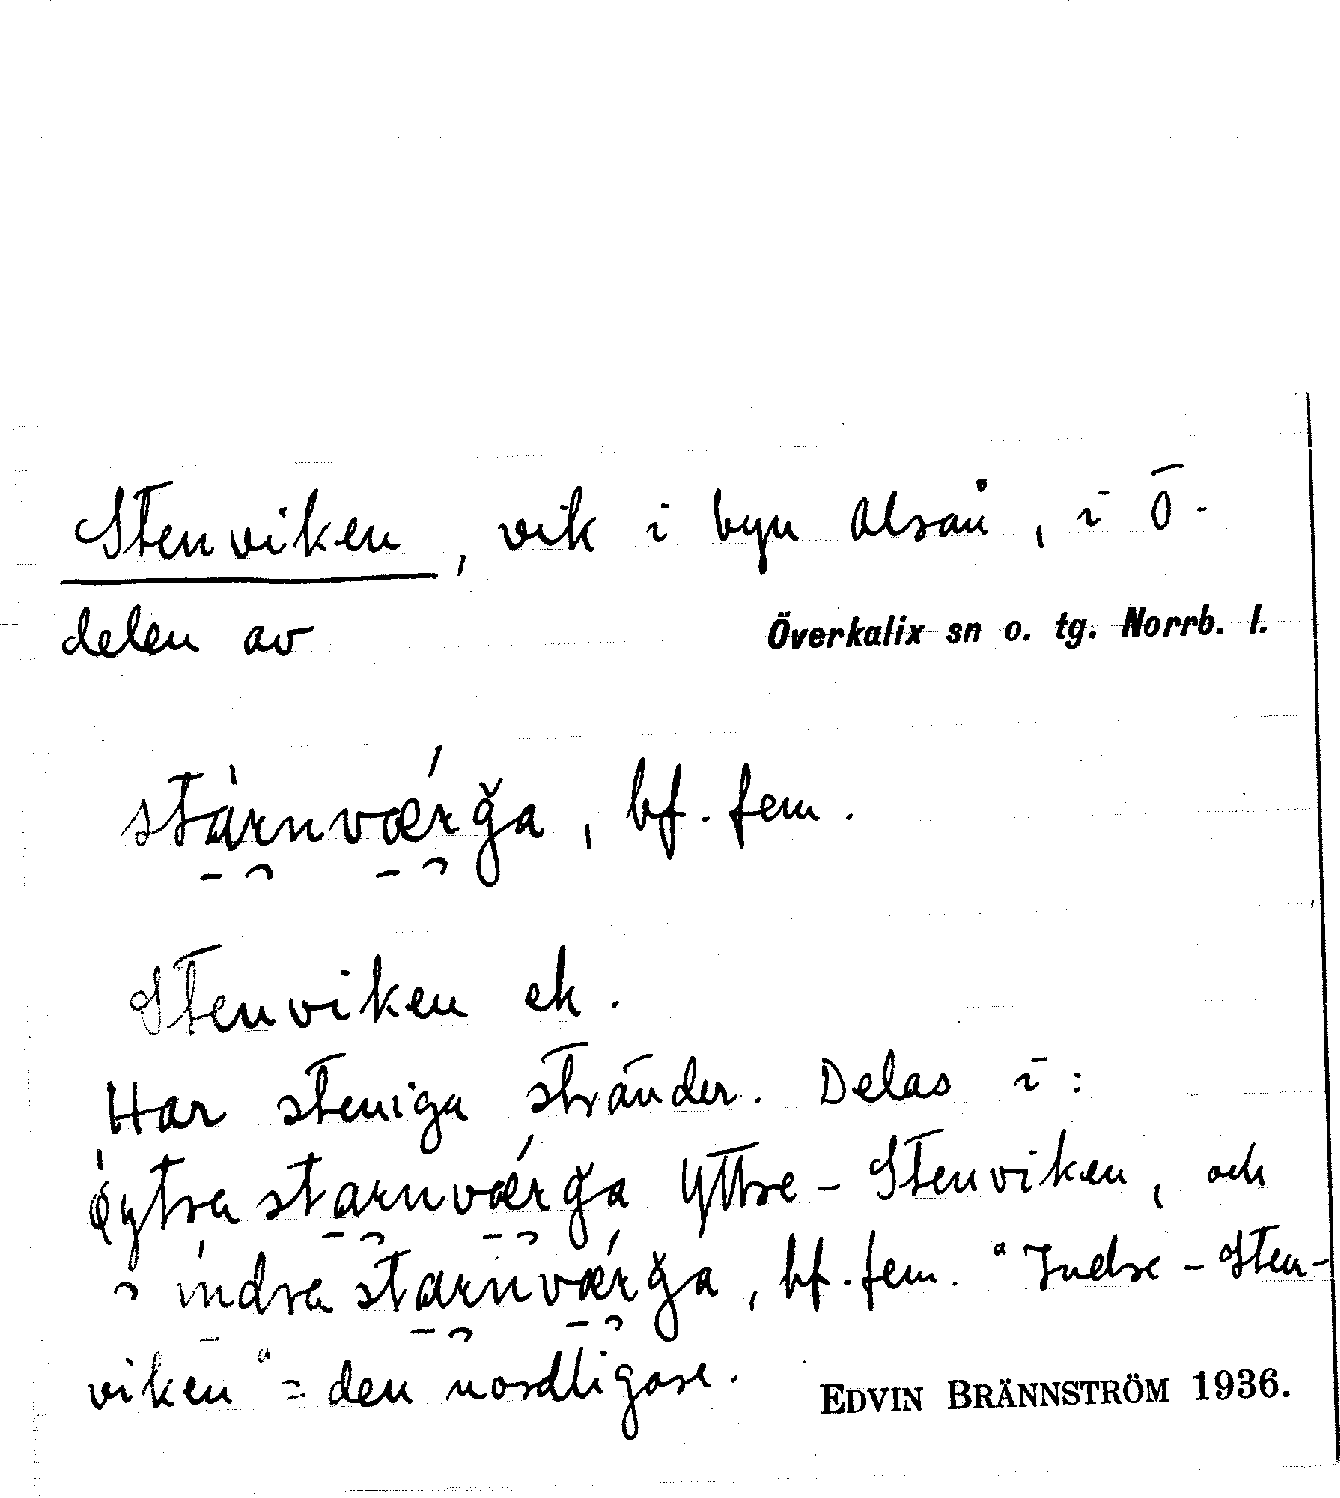 Stenviken, vik i byn Alsån, i Ö.
delen av Överkalix sn o. tg. Norrb. l.
stàrnvǽrğa, bf. fem.
Stenviken ek.
Har steniga stränder. Delas i:
starnvǽrğa Yttre-Stenviken, och
indra starnvǽrğa, bf. fem. "Indre-Sten-
viken" = den nordligare. EDVIN BRÄNNSTRÖM 1936.